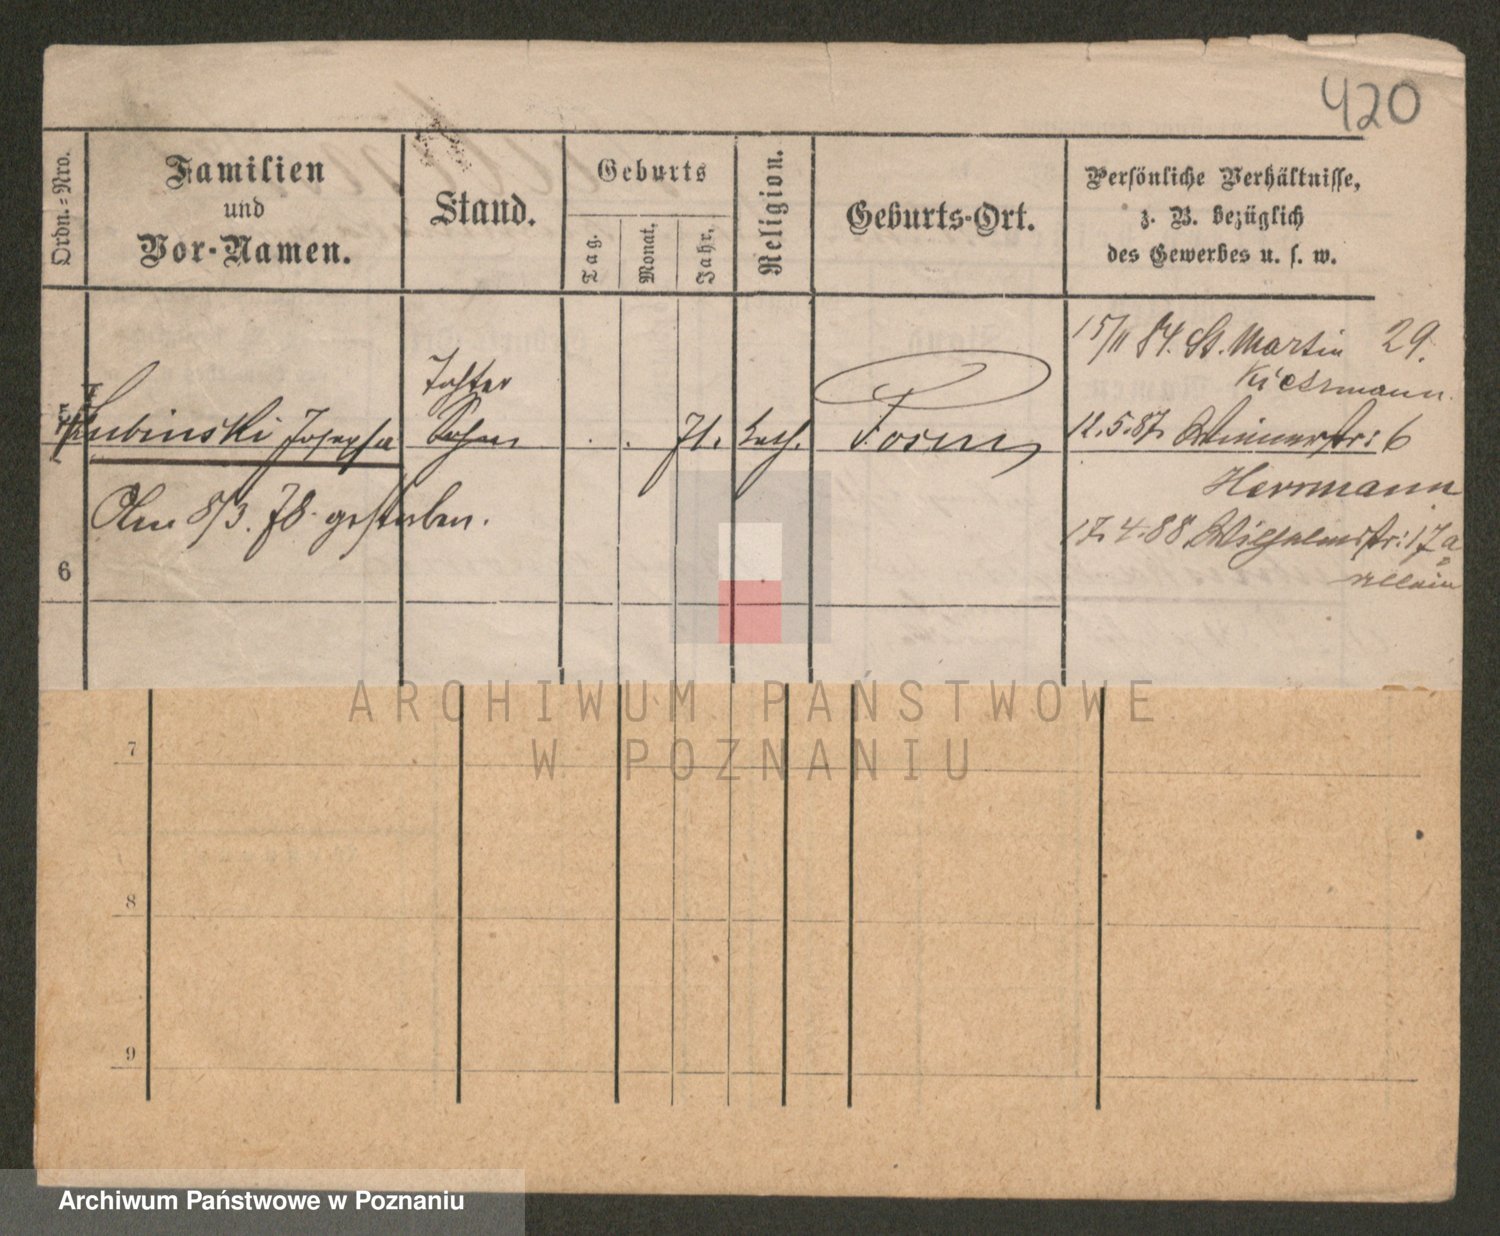 420
Ordn.-Nro.
Familien
und
Vor-Namen.
Stand.
Geburts
Tag.
Monat.
Jahr.
Religion.
Geburts-Ort.
Persönliche Verhältnisse,
z. B. bezüglich
des Gewerbes u. s. w.
15/11 84. St. Martin 29.
Tochter
Lubinski Josepha
71.
kath.
Posen
12.5.87. 6
Herrmann
Am 8/3. 78. gestorben.
17.4.88 Wilhelmstr: 17a
allein
6
ARCHIWUM PAŃSTWOWE
W POZNANIU
7
8
9
Archiwum Państwowe w Poznaniu